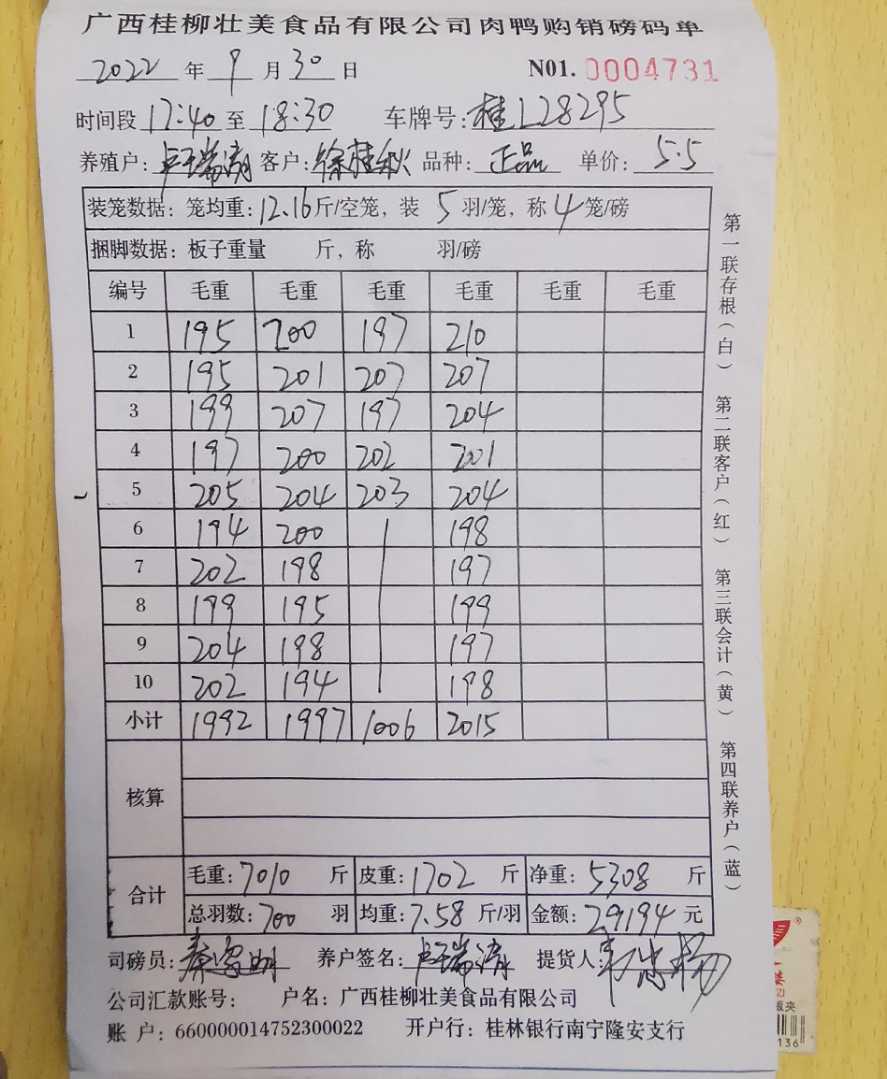 广西桂柳壮美食品有限公司肉鸭购销磅码单
2022 年 9 月 30 日 N01. 0004731
时间段 17:40 至 18:30 车牌号: 桂L28295
养殖户: 卢瑞清 客户: 徐桂秋 品种: 正品 单价: 5.5
装笼数据: 笼均重: 12.16 斤/空笼, 装 5 羽/笼, 称 4 笼/磅
捆脚数据: 板子重量 斤, 称 羽/磅
编号 毛重 毛重 毛重 毛重 毛重 毛重
1 195 200 197 210
2 195 201 207 207
3 199 207 197 204
4 197 200 202 201
5 205 204 203 204
6 194 200 198
7 202 198 197
8 199 195 199
9 204 198 197
10 202 194 198
小计 1992 1997 1006 2015
核算
合计 毛重: 7010 斤 皮重: 1702 斤 净重: 5308 斤
总羽数: 700 羽 均重: 7.58 斤/羽 金额: 29194 元
司磅员: 养户签名: 卢瑞清 提货人:
公司汇款账号: 户名: 广西桂柳壮美食品有限公司
账 户: 660000014752300022 开户行: 桂林银行南宁隆安支行
第一联存根(白) 第二联客户(红) 第三联会计(黄) 第四联养户(蓝)
136